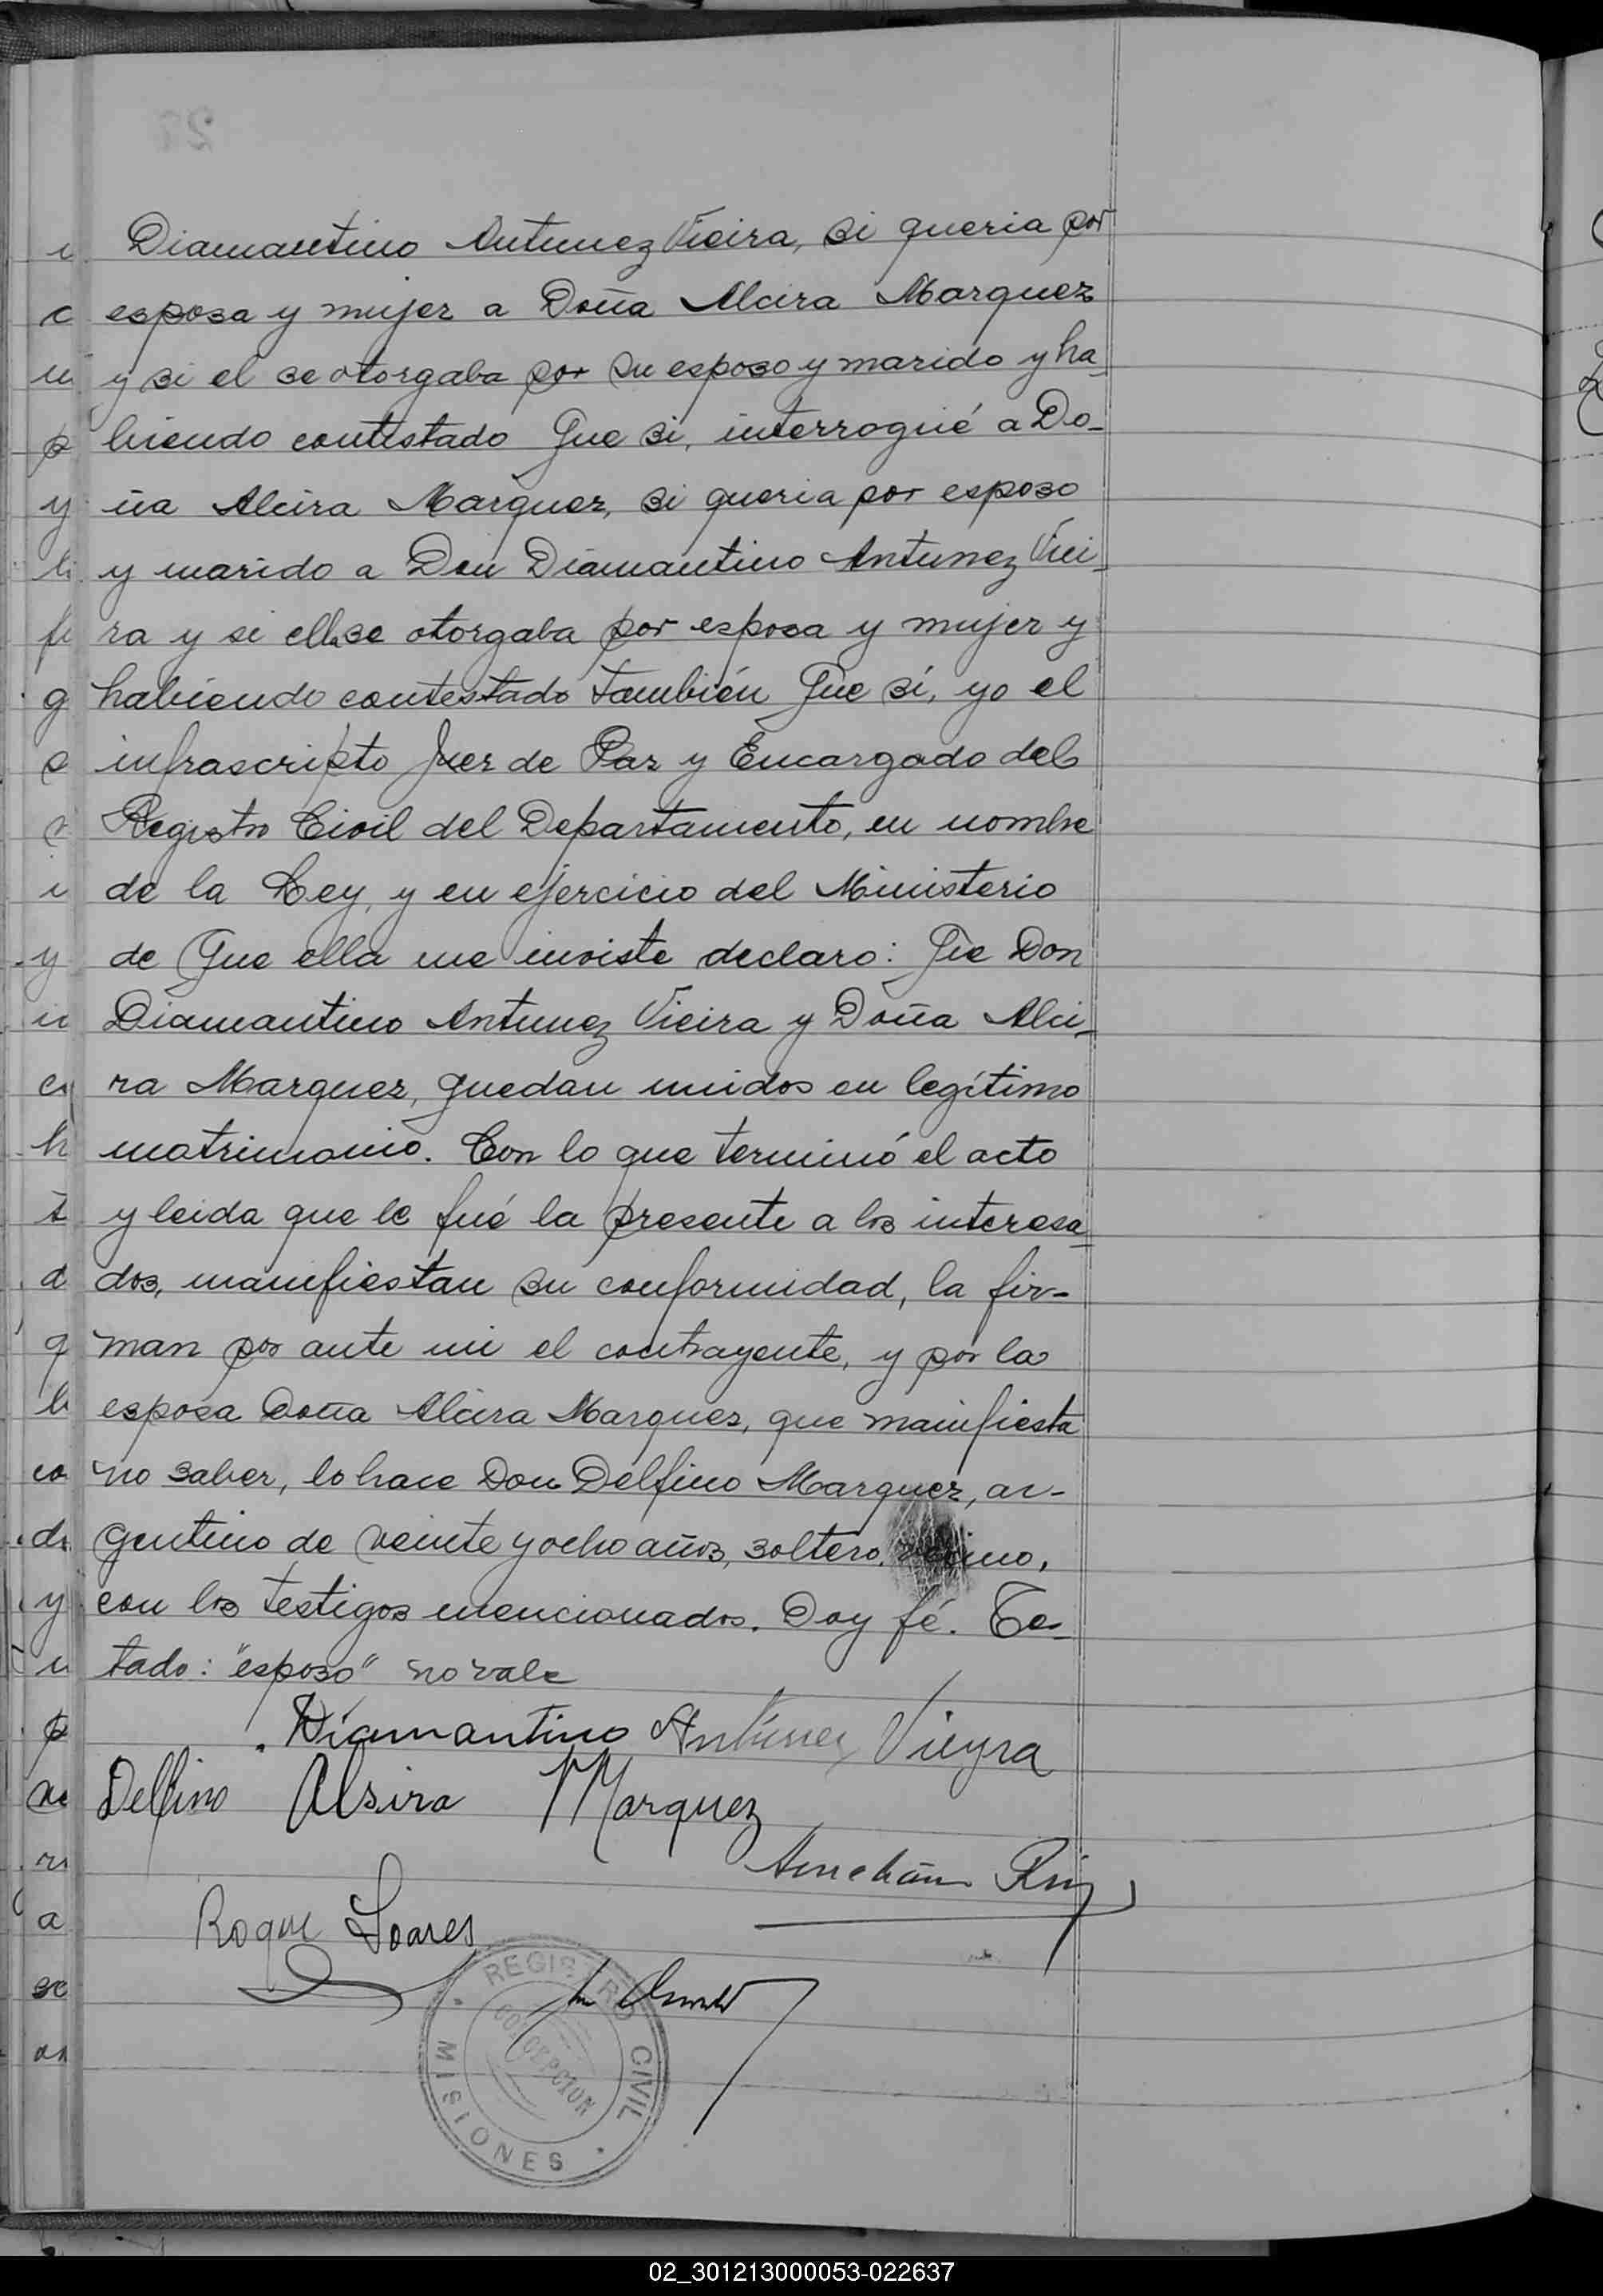 Diamantino Antunez Vieira, si queria por
esposa y mujer a Doña Alcira Marquez
y si el se otorgaba por su esposo y marido y ha-
biendo contestado Que si, interrogué a Do-
ña Alcira Marquez, si queria por esposo
y marido a Don Diamantino Antunez Viei-
ra y si ella se otorgaba por esposa y mujer y
habiendo contestado también Que sí, yo el
infrascripto Juez de Paz y Encargado del
Registro Civil del Departamento, en nombre
de la Ley, y en ejercicio del Ministerio
de Que ella me inviste declaro: Que Don
Diamantino Antunez Vieira y Doña Alci-
ra Marquez, quedan unidos en legítimo
matrimonio. Con lo que terminó el acto
y leida que le fué la presente a los interesa-
dos, manifiestan su conformidad, la fir-
man por ante mi el contrayente, y por la
esposa Doña Alcira Marquez, que manifiesta
no saber, lo hace Don Delfino Marquez, ar-
gentino de veinte y ocho años, soltero, vecino,
con los testigos mencionados. Doy fé. Tes-
tado: "esposo" no vale
Diamantino Antunez Vieyra
Delfino Alsira Marquez
Roque Soares
REGISTRO CIVIL
CONCEPCION
MISIONES
02_301213000053-022637